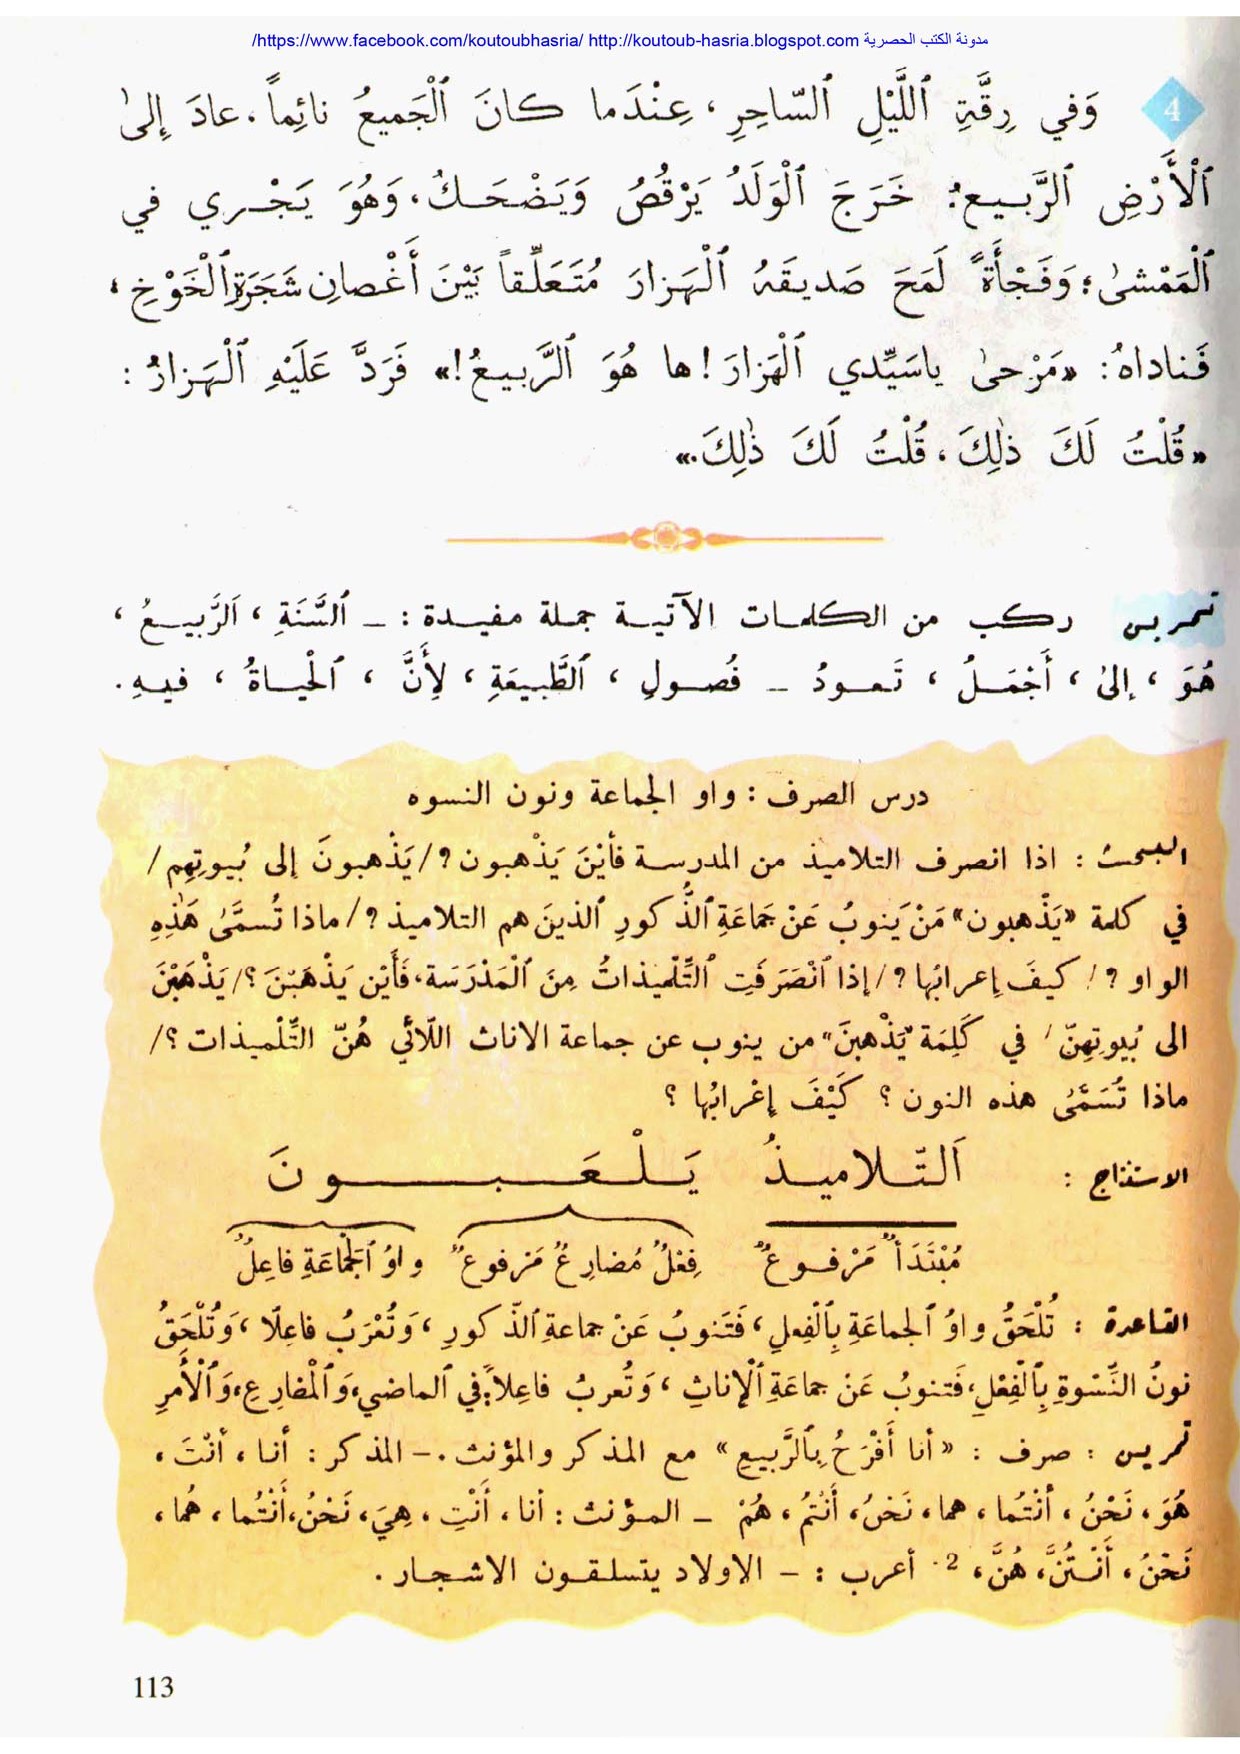 https://www.facebook.com/koutoubhasria/ http://koutoub-hasria.blogspot.com مدونة الكتب الحصرية/
4 وَفي رِقَّةِ ٱللَّيْلِ ٱلسّاحِرِ ، عِنْدَما كانَ ٱلْجَميعُ نائِماً . عادَ إِلىٰ
ٱلْأَرْضِ ٱلرَّبيعُ : خَرَجَ ٱلْوَلَدُ يَرْقُصُ وَيَضْحَكُ ، وَهُوَ يَجْري في
ٱلْمَمْشىٰ ؛ وَفَجْأَةً لَمَحَ صَديقَهُ ٱلْهَزارَ مُتَعَلِّقاً بَيْنَ أَغْصانِ شَجَرَةِ ٱلْخَوْخِ ،
فَناداهُ : «مَرْحىٰ ياسَيِّدي ٱلْهَزارَ ! ها هُوَ ٱلرَّبيعُ !» فَرَدَّ عَلَيْهِ ٱلْهَزارُ :
«قُلْتُ لَكَ ذٰلِكَ ، قُلْتُ لَكَ ذٰلِكَ .»
تمرين ركب من الكلمات الآتية جملة مفيدة : ـ ٱلسَّنَةِ ، اَلرَّبيعُ ،
هُوَ ، إِلىٰ ، أَجْمَلُ ، تَعودُ ـ فُصولِ ، ٱلطَّبيعَةِ ، لِأَنَّ ، ٱلْحَياةُ ، فيهِ .
درس الصرف : واو الجماعة ونون النسوه
البحث : اذا انصرف التلاميذ من المدرسة فأيْنَ يَذْهبون ؟/ يَذْهبونَ إلى بُيوتِهِم /
في كلمة «يَذْهبون» مَنْ يَنوبُ عَنْ جَماعَةِ ٱلذُّكورِ ٱلذينَ هم التلاميذ ؟/ ماذا تُسمَّىٰ هَٰذِهِ
الواو ؟/ كيفَ إعرابُها ؟/ إذا ٱنْصَرَفَتِ ٱلتِّلْميذاتُ مِنَ ٱلْمَدْرَسَة ، فَأَيْن يَذْهَبْنَ ؟/ يَذْهَبْنَ
الى بُيوتِهِنّ / في كَلِمَة "يَذْهبنَ" من ينوب عن جماعة الاناث اللّائي هُنّ التِّلْميذات ؟/
ماذا تُسَمَّىٰ هذه النون ؟ كَيْفَ إعْرابُها ؟
الاستنتاج : اَلتّلاميذُ يَلْعَبونَ
مُبْتَدَأٌ مَرْفوعٌ فِعْلٌ مُضارِعٌ مَرْفوعٌ واوُ ٱلْجَماعَةِ فاعِلٌ
القاعدة : تُلْحَقُ واوُ ٱلجماعَةِ بِٱلْفِعلِ ، فَتَنوبُ عَنْ جماعةِ ٱلذّكورِ ، وَتُعْرَبُ فاعِلًا ، وَتُلْحَقُ
نونُ النِّسْوةِ بِٱلْفِعْلِ ، فَتنوبُ عَنْ جماعَةِ ٱلْإناثِ ، وَتُعربُ فاعِلاً : في ٱلماضي ، وَٱلْمضارِعِ ، وَٱلْأَمرِ
تمرين : صرف : «أنا أَفْرَحُ بِٱلرَّبيعِ » مع المذكر والمؤنث . ـ المذكر : أنا ، أنْتَ ،
هُوَ ، نَحْنُ ، أنْتُما ، هما ، نَحْنُ ، أَنْتُمُ ، هُمْ ـ المؤنث : أنا ، أَنْتِ ، هِيَ ، نَحْنُ ، أَنْتُما ، هُما ،
نَحْنُ ، أَنْتُنَّ ، هُنَّ ، 2 . أعرب : ـ الاولاد يتسلقون الاشجار .
113